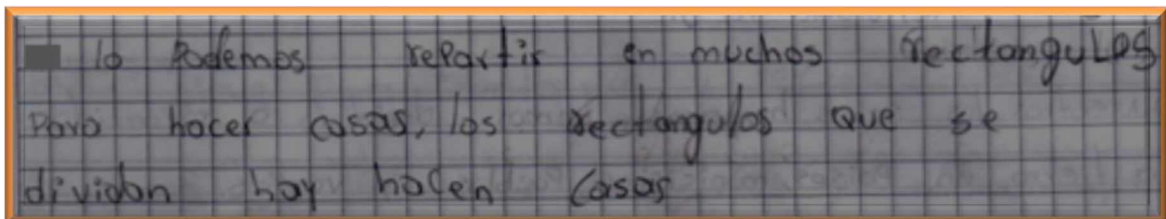 lo Podemos repartir en muchos rectangulos
Para hacer casas, los rectangulos que se
dividan hay hacen casas